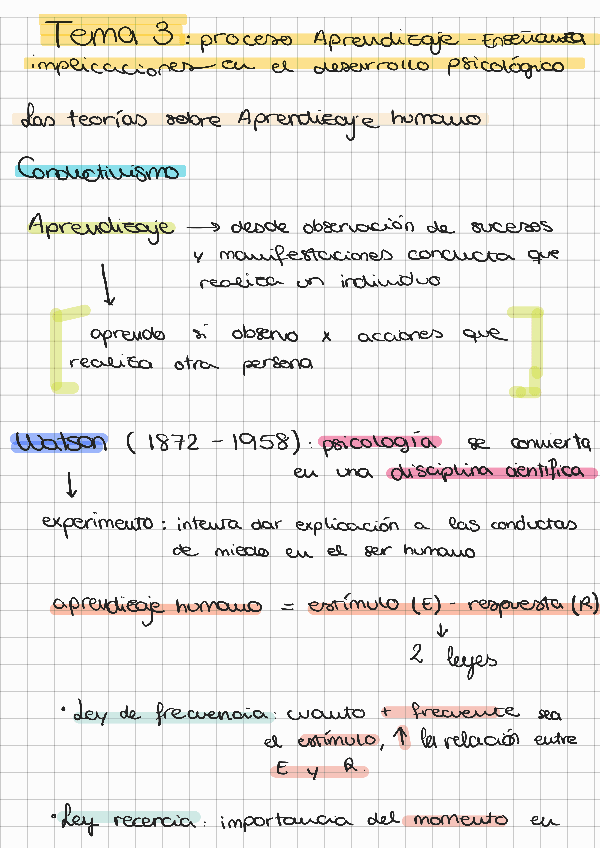 Tema 3: proceso Aprendizaje - Enseñanza
implicaciones en el desarrollo psicológico
Las teorías sobre Aprendizaje humano
Conductivismo
Aprendizaje → desde observación de sucesos
y manifestaciones conducta que
realiza un individuo
↓
aprendo si observo x acciones que
realiza otra persona
Watson (1872 - 1958): psicología se convierta
en una disciplina científica
↓
experimento: intenta dar explicación a las conductas
de miedo en el ser humano
aprendizaje humano = estímulo (E) - respuesta (R)
↓
2 leyes
· Ley de frecuencia: cuanto + frecuente sea
el estímulo, ↑ la relación entre
E y R.
· Ley recencia: importancia del momento en